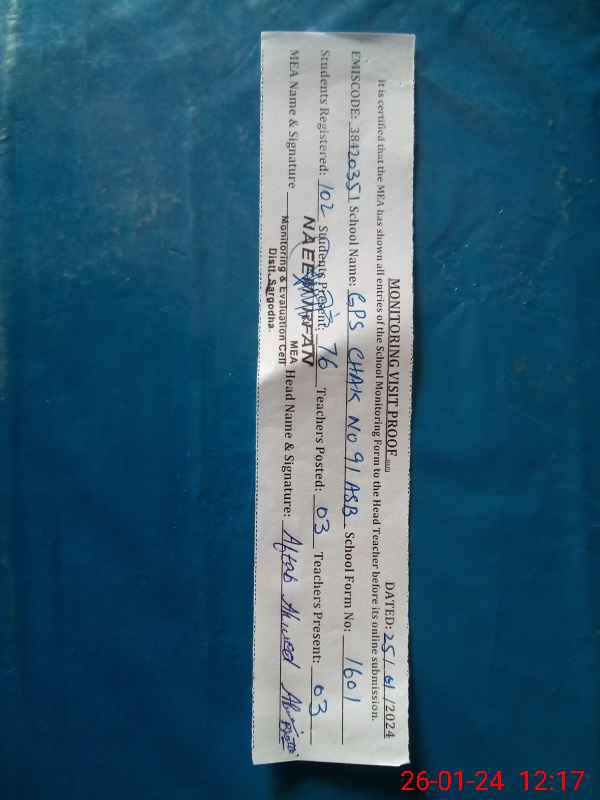 MONITORING VISIT PROOF
DATED: 25/01/2024
It is certified that the MEA has shown all entries of the School Monitoring Form to the Head Teacher before its online submission.
EMISCODE: 38420351 School Name: GPS CHAK NO 91 ASB School Form No: 1601
Students Registered: 102 Students Present: 76 Teachers Posted: 03 Teachers Present: 03
MEA Name & Signature Head Name & Signature: Aftab Ahmed
NAEEM IRFAN
MEA
Monitoring & Evaluation Cell
Distt. Sargodha.
26-01-24 12:17